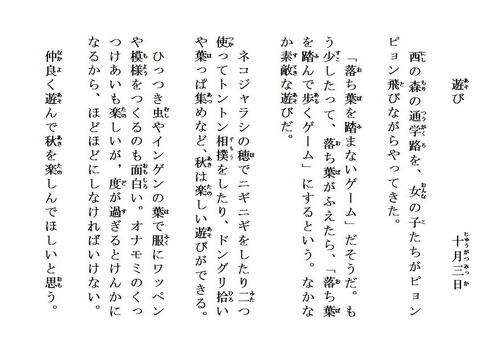 遊び　十月三日
西の森の通学路を、女の子たちがピョン
ピョン飛びながらやってきた。
「落ち葉を踏まないゲーム」だそうだ。も
う少したって、落ち葉がふえたら、「落ち葉
を踏んで歩くゲーム」にするという。なかな
か素敵な遊びだ。
ネコジャラシの穂でニギニギをしたり二つ
使ってトントン相撲をしたり、ドングリ拾い
や葉っぱ集めなど、秋は楽しい遊びができる。
ひっつき虫やインゲンの葉で服にワッペン
や模様をつくるのも面白い。オナモミのくっ
つけあいも楽しいが、度が過ぎるとけんかに
なるから、ほどほどにしなければいけない。
仲良く遊んで秋を楽しんでほしいと思う。